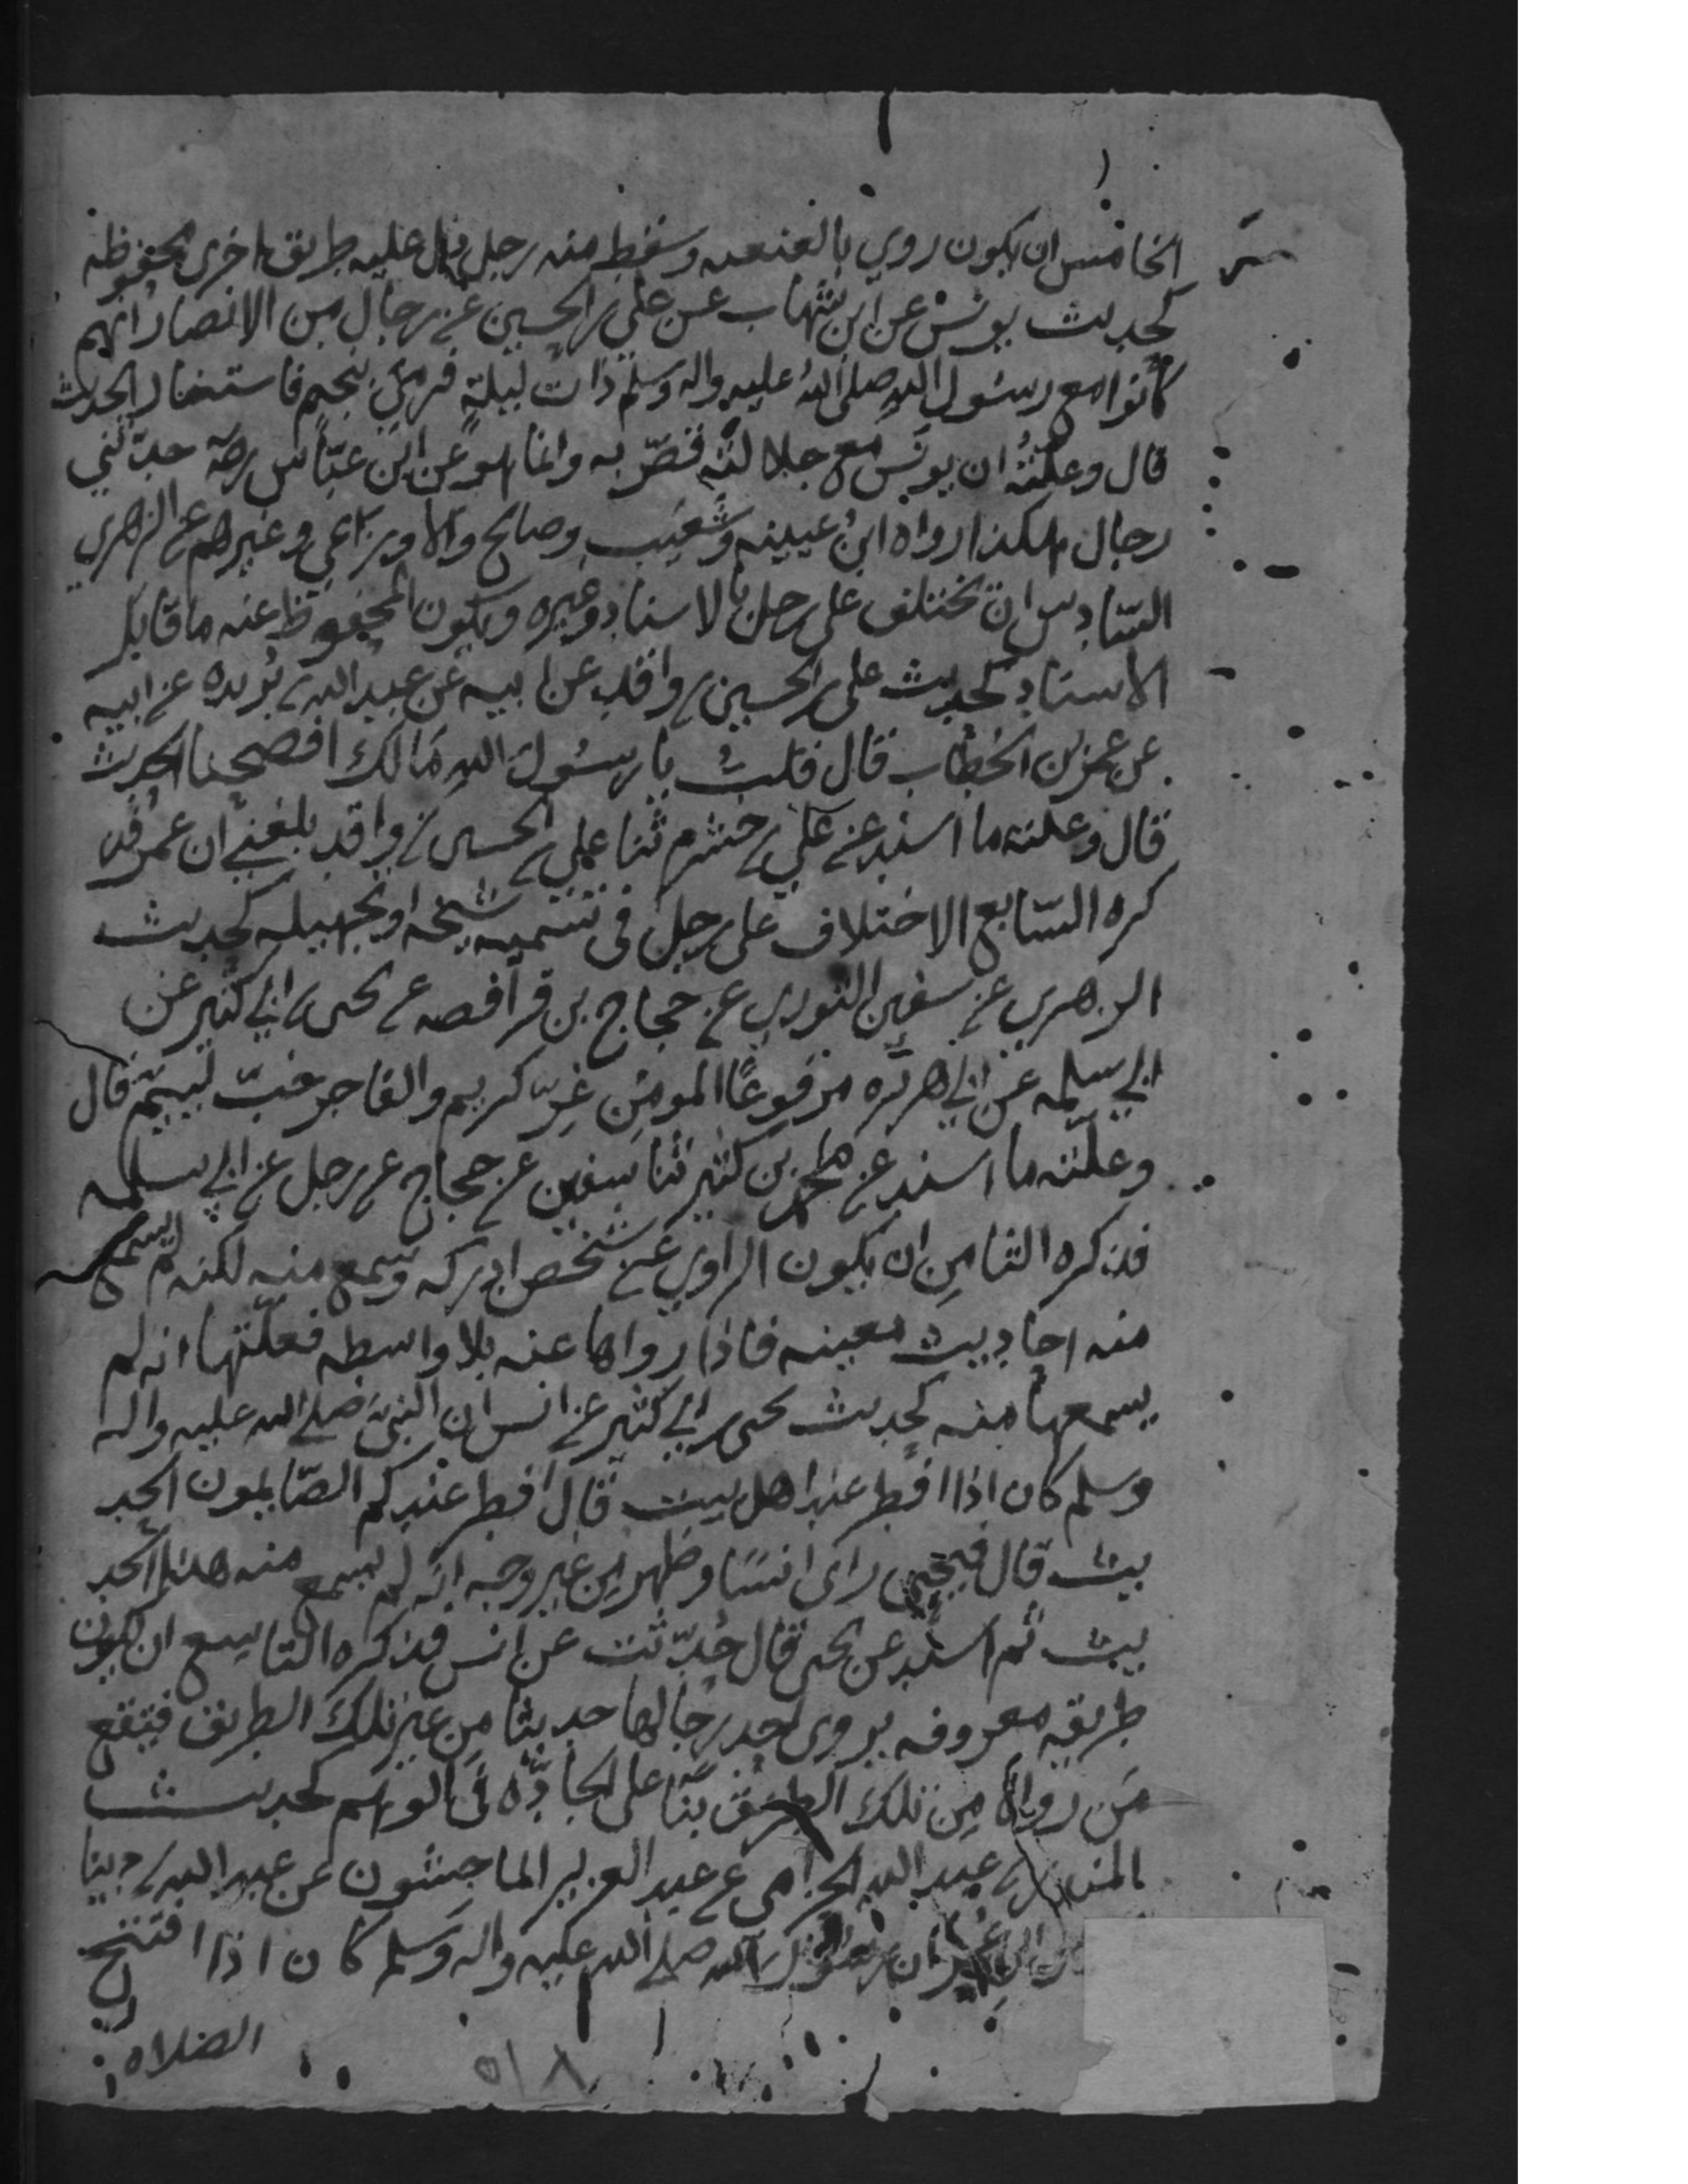 الخامس ان يكون روي بالعنعنه وسقط منه رجل دل عليه طريق اخرى محفوظه
كحديث يونس عن ابن شهاب عن علي بن الحسين عن رجال من الانصار انهم
كانوا مع رسول الله صلى الله عليه واله وسلم ذات ليلة فرمي بنجم فاستنار الحديث
قال وعلته ان يونس مع جلالته قصر به وانما هو عن ابن عباس رضه حدثني
رجال هكذا رواه ابن عيينه وشعيب وصالح والاوزاعي وغيرهم عن الزهري
السادس ان تختلف على رجل بالاسناد وغيره ويكون المحفوظ عنه ما قابل
الاسناد كحديث علي بن الحسين بن واقد عن ابيه عن عبد الله بن بريده عن ابيه
عن عمر بن الخطاب قال قلت يا رسول الله مالك افصحنا الحديث
قال وعلته ما اسند عن علي بن خشرم ثنا علي بن الحسين بن واقد بلغني ان عمر فذ
كره السابع الاختلاف على رجل في تسميه شيخه او تجهيله كحديث
الزهري عن سفين الثوري عن حجاج بن فرافصه عن يحيى بن ابي كثير عن
ابي سلمه عن ابي هريره مرفوعًا المومن غر كريم والفاجر خب لييم قال
وعلته ما اسند عن محمد بن كثير ثنا سفين عن حجاج عن رجل عن ابي سلمه
فذكره الثامن ان يكون الراوي عن شخص ادركه وسمع منه لكنه لم يسمع
منه احاديث معينه فاذا رواها عنه بلا واسطه فعلتها انه لم
يسمعها منه كحديث يحيى بن ابي كثير عن انس ان النبي صلى الله عليه واله
وسلم كان اذا افطر عند اهل بيت قال افطر عندكم الصايمون الحد
يث قال فيحيى راى انسًا وظهر من غير وجه انه لم يسمع منه هذا الحد
يث ثم اسند عن يحيى قال حُدّثت عن انس فذكره التاسع ان يكون
طريقه معروفه يروي احد رجالها حديثا من غير تلك الطريق فيقع
من رواه من تلك الطريق بنا على الجادّه في الوهم كحديث
المنذر بن عبد الله الحزامي عن عبد العزيز الماجشون عن عبد الله بن دينا
ابن عمر ان رسول الله صلى الله عليه واله وسلم كان اذا افتتح
الصلاه
٥١٨